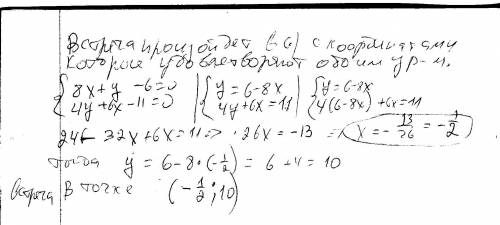 Встреча произойдет в G) с координатами
которые удовлетворяют обоим ур-м.
{8x+y -6=0 | {y=6-8x | {y=6-8x
{4y+6x-11=0 | {4y+6x=11 | {4(6-8x)+6x=11
24-32x+6x=11 => -26x=-13 => x=-13/26=-1/2
тогда y=6-8*(-1/2)=6+4=10
встреча в точке (-1/2;10)